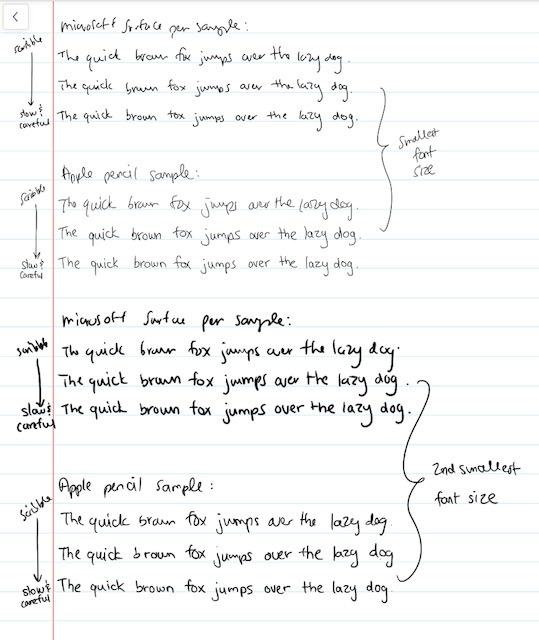 microsoft surface pen sample:
scribble
The quick brown fox jumps over the lazy dog.
The quick brown fox jumps over the lazy dog.
slow & careful
The quick brown fox jumps over the lazy dog.
smallest
font
size
Apple pencil sample:
scribble
The quick brown fox jumps over the lazy dog.
The quick brown fox jumps over the lazy dog.
slow & careful
The quick brown fox jumps over the lazy dog.
microsoft surface pen sample:
scribble
The quick brown fox jumps over the lazy dog.
The quick brown fox jumps over the lazy dog.
slow & careful
The quick brown fox jumps over the lazy dog.
2nd smallest
font size
Apple pencil sample:
scribble
The quick brown fox jumps over the lazy dog.
The quick brown fox jumps over the lazy dog
slow & careful
The quick brown fox jumps over the lazy dog.